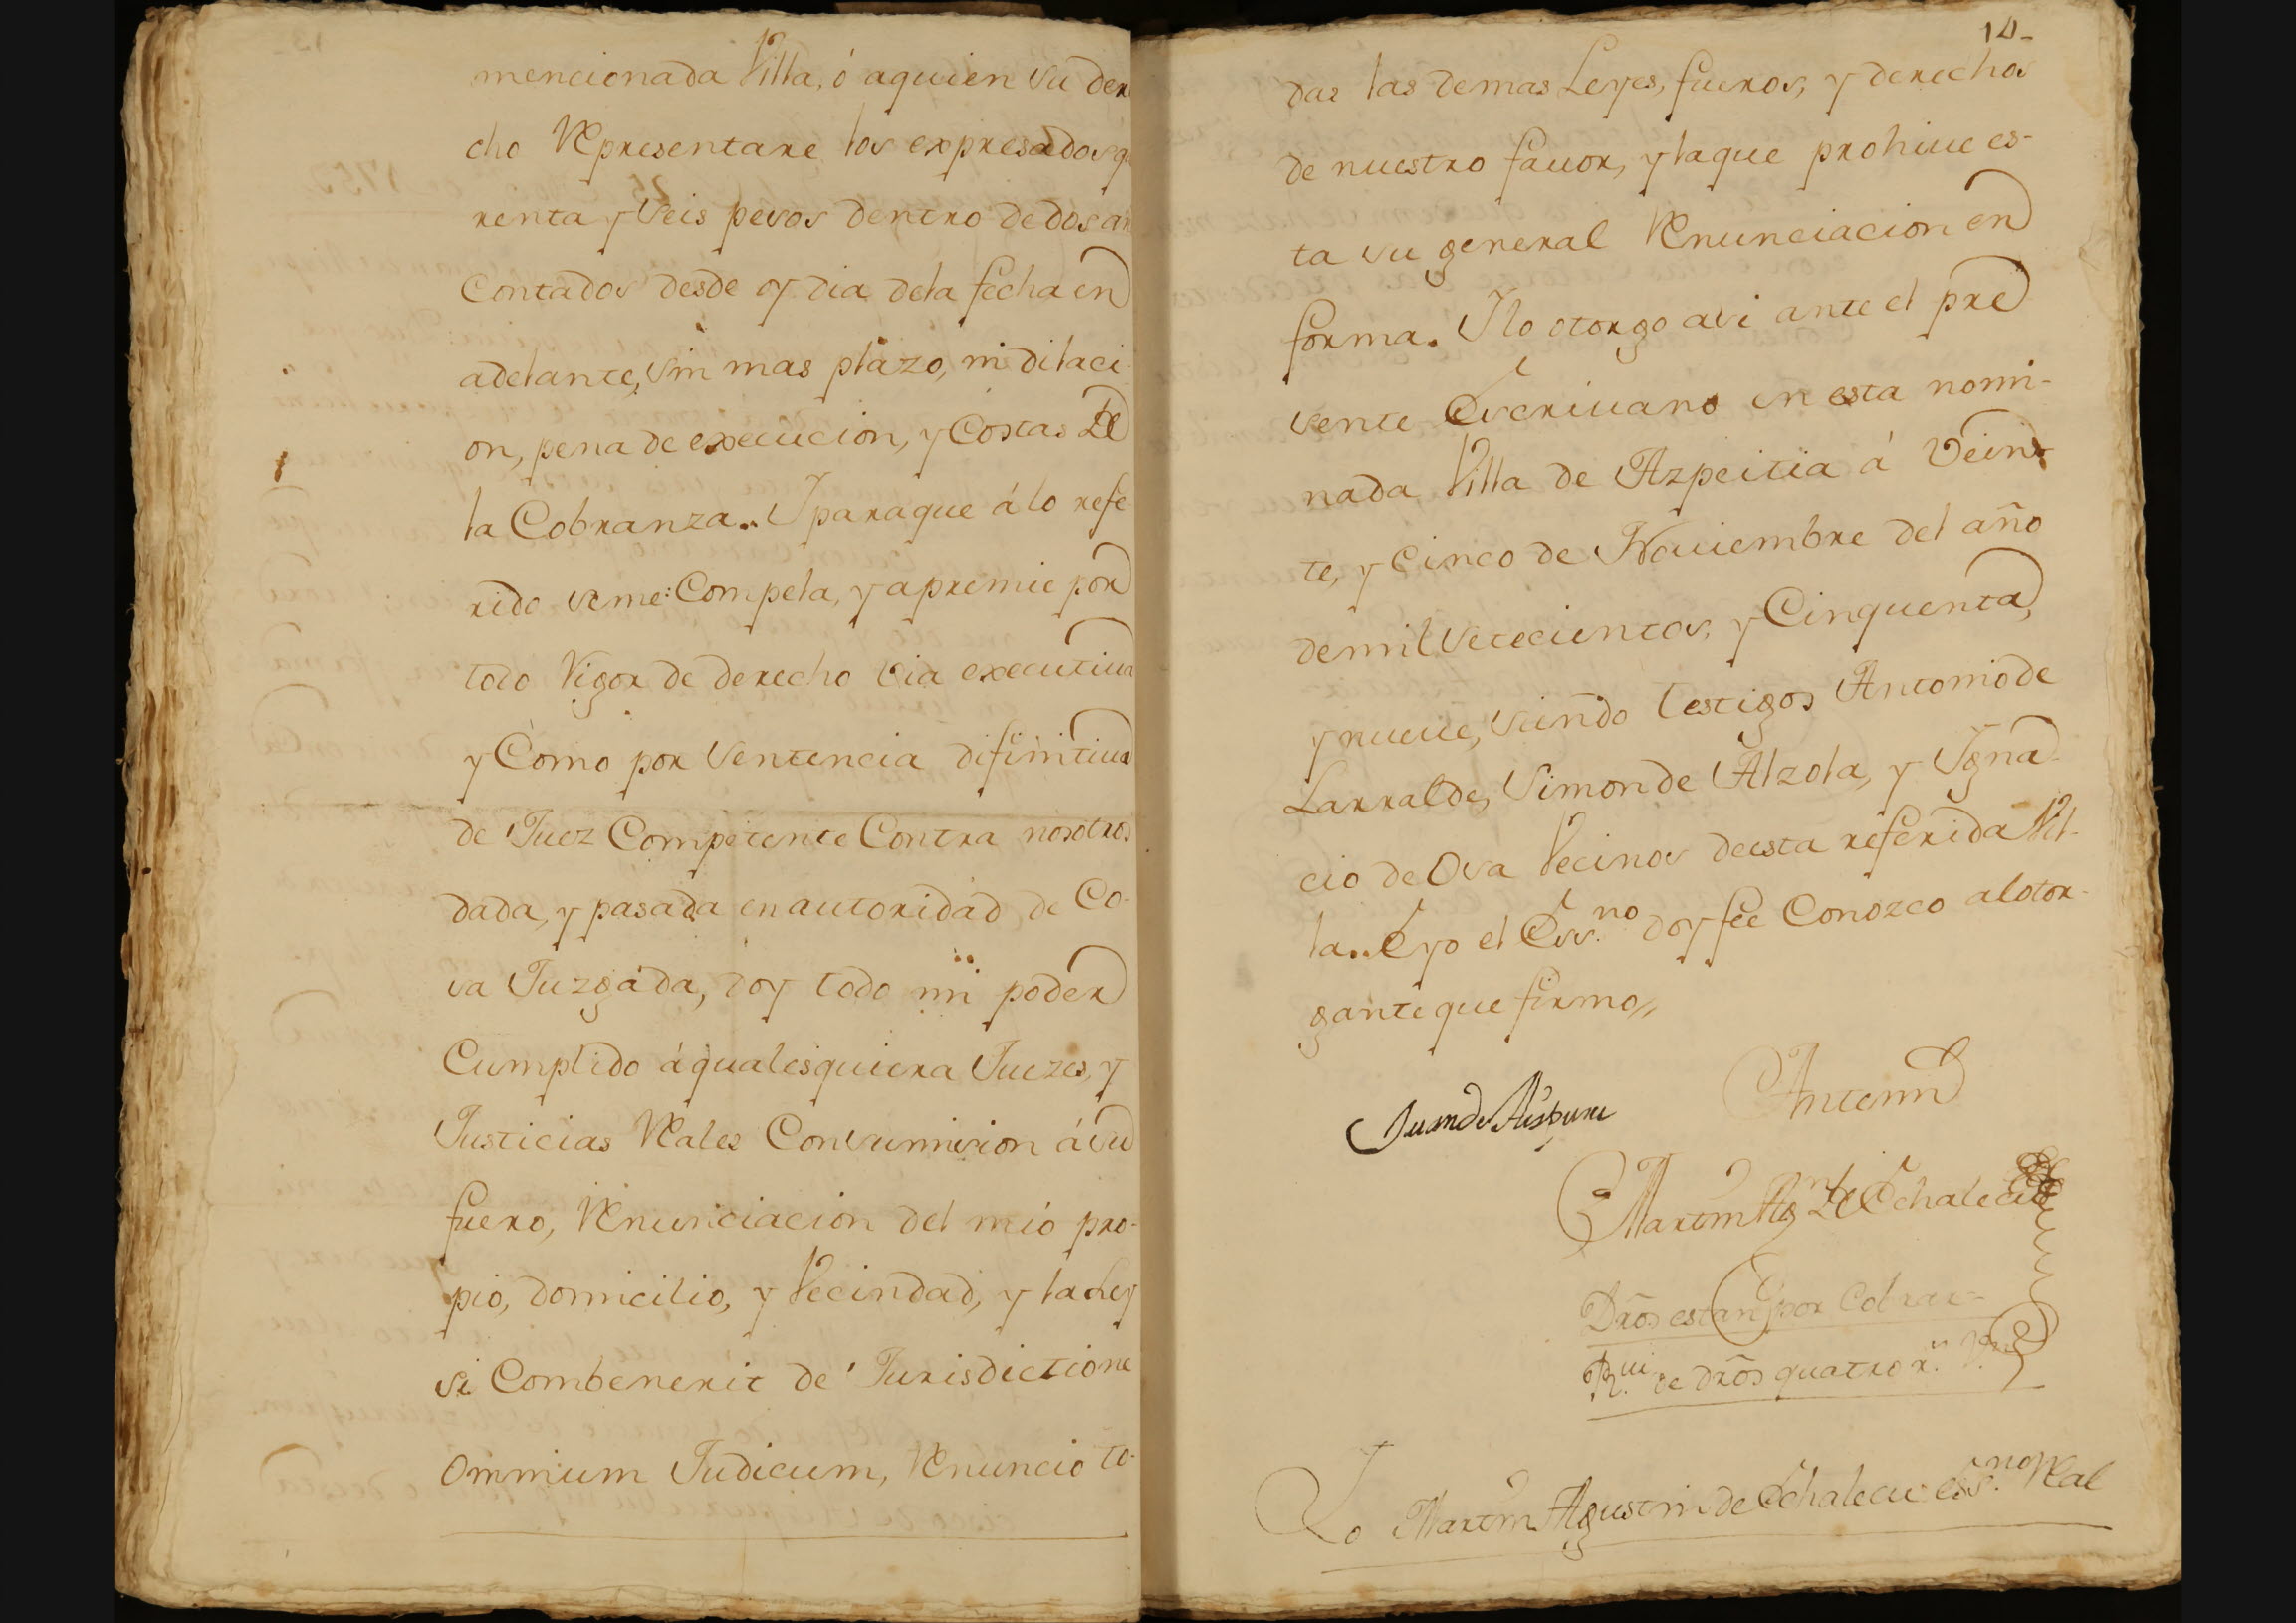 mencionada Villa, ó aquien su dere
cho Representare los expresados q
renta y seis pesos dentro de dos añ
Contados desde oy dia dela fecha en
adelante, sin mas plazo, ni dilaci
on, pena de execucion, y Costas De
la Cobranza.. Y paraque á lo refe
rido se me: Compela, y apremie por
todo Vigor de derecho via executiua
y Como por Sentencia difinitiua
de Juez Competente Contra nosotros
dada, y pasada en autoridad de Co-
sa Juzgada, doy todo mi poder
Cumplido á qualesquiera Juezes, y
Justicias Reales Consumision á su
fuero, Renunciacion del mio pro-
pio, domicilio, y Vecindad, y la Ley
si Combenerit de Jurisdictione
Omnium Judicum, Renuncio to-
14-
das las demas Leyes, fueros, y derechos
de nuestro fauor, y laque prohiue es-
ta su general Renunciacion en
forma. Y lo otorgo asi ante el pre
sente Escriuano en esta nomi-
nada Villa de Azpeitia á Vein-
te, y Cinco de Nouiembre del año
de mil setecientos, y Cinquenta,
y nueue, siendo testigos Antonio de
Larralde, Simon de Alzola, y Ygna-
cio de Osa Vecinos de esta referida Vil-
la.. E yo el Ess.no doy fee Conozco al otor-
gante que firmo,,
Juan de Aispuru
Antemi
Martin Ag.n de Echalecu
Dros estan por Cobrar=
R.ui de dros quatro r.s
Yo Martin Agustin de Echalecu Ess.no Real